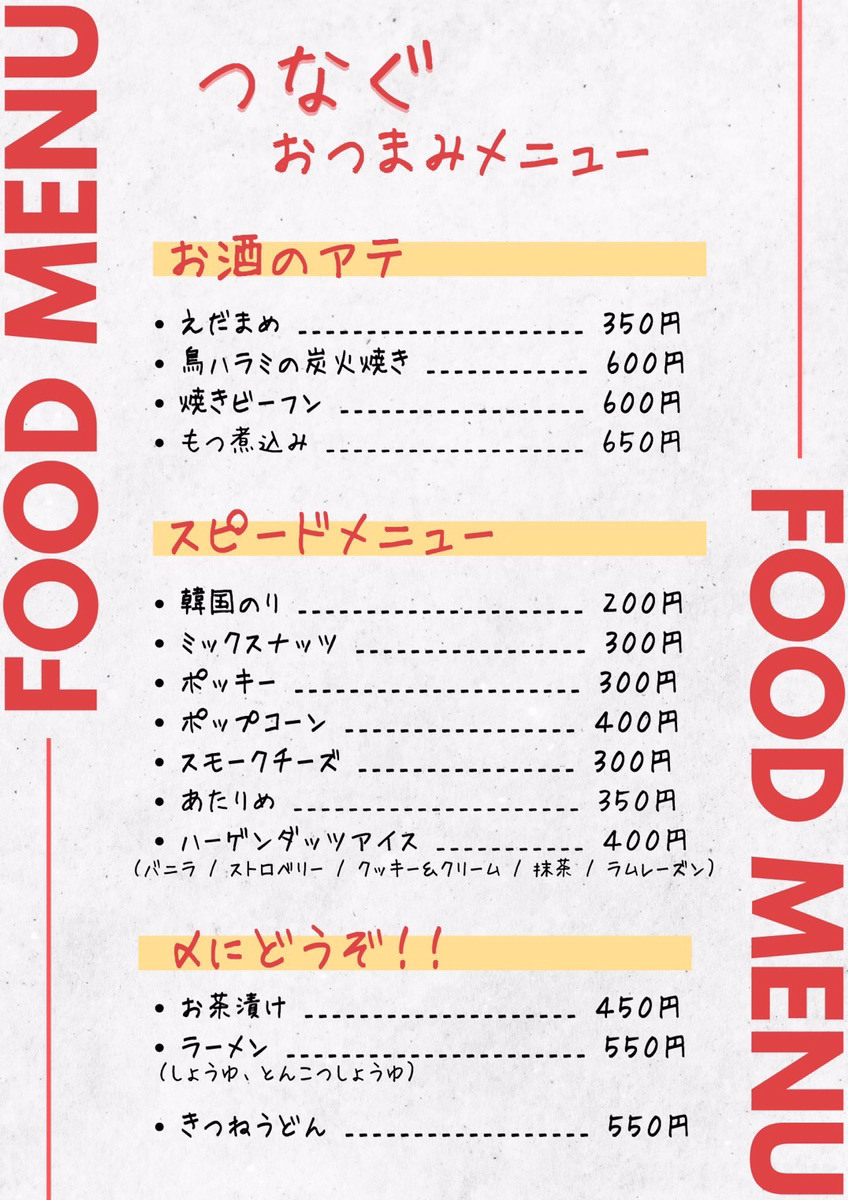 FOOD MENU
つなぐ
おつまみメニュー
お酒のアテ
• えだまめ ---------------------- 350円
• 鳥ハラミの炭火焼き ------------ 600円
• 焼きビーフン ------------------- 600円
• もつ煮込み -------------------- 650円
スピードメニュー
• 韓国のり ---------------------- 200円
• ミックスナッツ ------------------ 300円
• ポッキー ---------------------- 300円
• ポップコーン ------------------ 400円
• スモークチーズ ----------------- 300円
• あたりめ ---------------------- 350円
• ハーゲンダッツアイス ----------- 400円
(バニラ / ストロベリー / クッキー&クリーム / 抹茶 / ラムレーズン)
〆にどうぞ！！
• お茶漬け --------------------- 450円
• ラーメン ----------------------- 550円
(しょうゆ、とんこつしょうゆ)
• きつねうどん ------------------- 550円
FOOD MENU